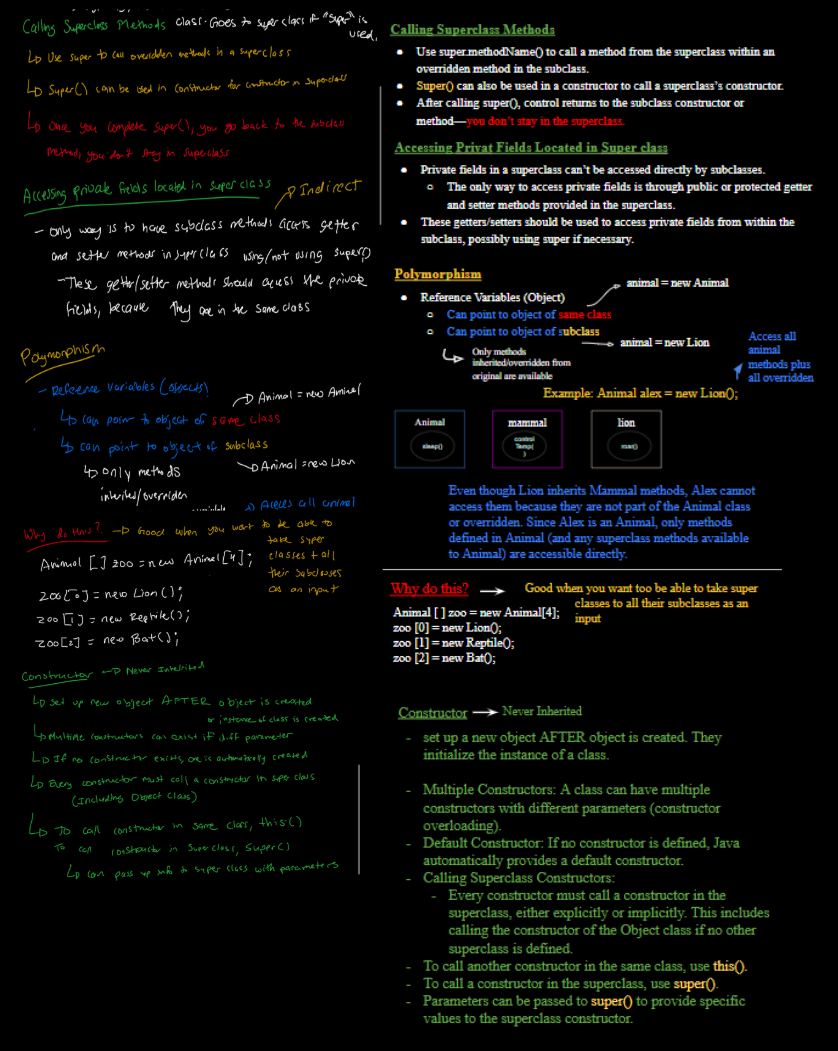 Calling Superclass Methods class. Goes to super class if "super" is
used.
↳ Use super to call overidden methods in a superclass
↳ Super() can be used in constructor for constructor in superclass
↳ Once you complete super(), you go back to the subclass
method, you don't stay in superclass
Accessing private fields located in super class → Indirect
- only way is to have subclass methods access getter
and setter methods in superclass using/not using super()
- These getter/setter methods should access the private
fields, because they are in the same class
Polymorphism
- Reference Variables (objects)
→ Animal = new Animal
↳ can point to object of same class
↳ can point to object of subclass
→ Animal = new Lion
↳ only methods
inherited/overriden
→ Access all animal
Why do this? → Good when you want to be able to
take super
classes + all
their subclasses
as an input
Animal [] zoo = new Animal[4];
zoo[0] = new Lion();
zoo[1] = new Reptile();
zoo[2] = new Bat();
Constructor → Never Inherited
↳ set up new object AFTER object is created
or instance of class is created
↳ Multiple constructors can exist if diff parameter
↳ If no constructor exists, one is automatically created
↳ Every constructor must call a constructor in super class
(Including Object Class)
↳ To call constructor in same class, this()
To call constructor in superclass, super()
↳ can pass up info to super class with parameters
Calling Superclass Methods
● Use super.methodName() to call a method from the superclass within an
overridden method in the subclass.
● Super() can also be used in a constructor to call a superclass's constructor.
● After calling super(), control returns to the subclass constructor or
method—you don't stay in the superclass.
Accessing Privat Fields Located in Super class
● Private fields in a superclass can't be accessed directly by subclasses.
○ The only way to access private fields is through public or protected getter
and setter methods provided in the superclass.
● These getters/setters should be used to access private fields from within the
subclass, possibly using super if necessary.
Polymorphism
animal = new Animal
● Reference Variables (Object)
○ Can point to object of same class
○ Can point to object of subclass
animal = new Lion
Only methods
inherited/overridden from
original are available
Access all
animal
methods plus
all overridden
Example: Animal alex = new Lion();
Animal
sleep()
mammal
control
Temp(
)
lion
roar()
Even though Lion inherits Mammal methods, Alex cannot
access them because they are not part of the Animal class
or overridden. Since Alex is an Animal, only methods
defined in Animal (and any superclass methods available
to Animal) are accessible directly.
Why do this? → Good when you want too be able to take super
classes to all their subclasses as an
input
Animal [ ] zoo = new Animal[4];
zoo [0] = new Lion();
zoo [1] = new Reptile();
zoo [2] = new Bat();
Constructor → Never Inherited
- set up a new object AFTER object is created. They
initialize the instance of a class.
- Multiple Constructors: A class can have multiple
constructors with different parameters (constructor
overloading).
- Default Constructor: If no constructor is defined, Java
automatically provides a default constructor.
- Calling Superclass Constructors:
- Every constructor must call a constructor in the
superclass, either explicitly or implicitly. This includes
calling the constructor of the Object class if no other
superclass is defined.
- To call another constructor in the same class, use this().
- To call a constructor in the superclass, use super().
- Parameters can be passed to super() to provide specific
values to the superclass constructor.